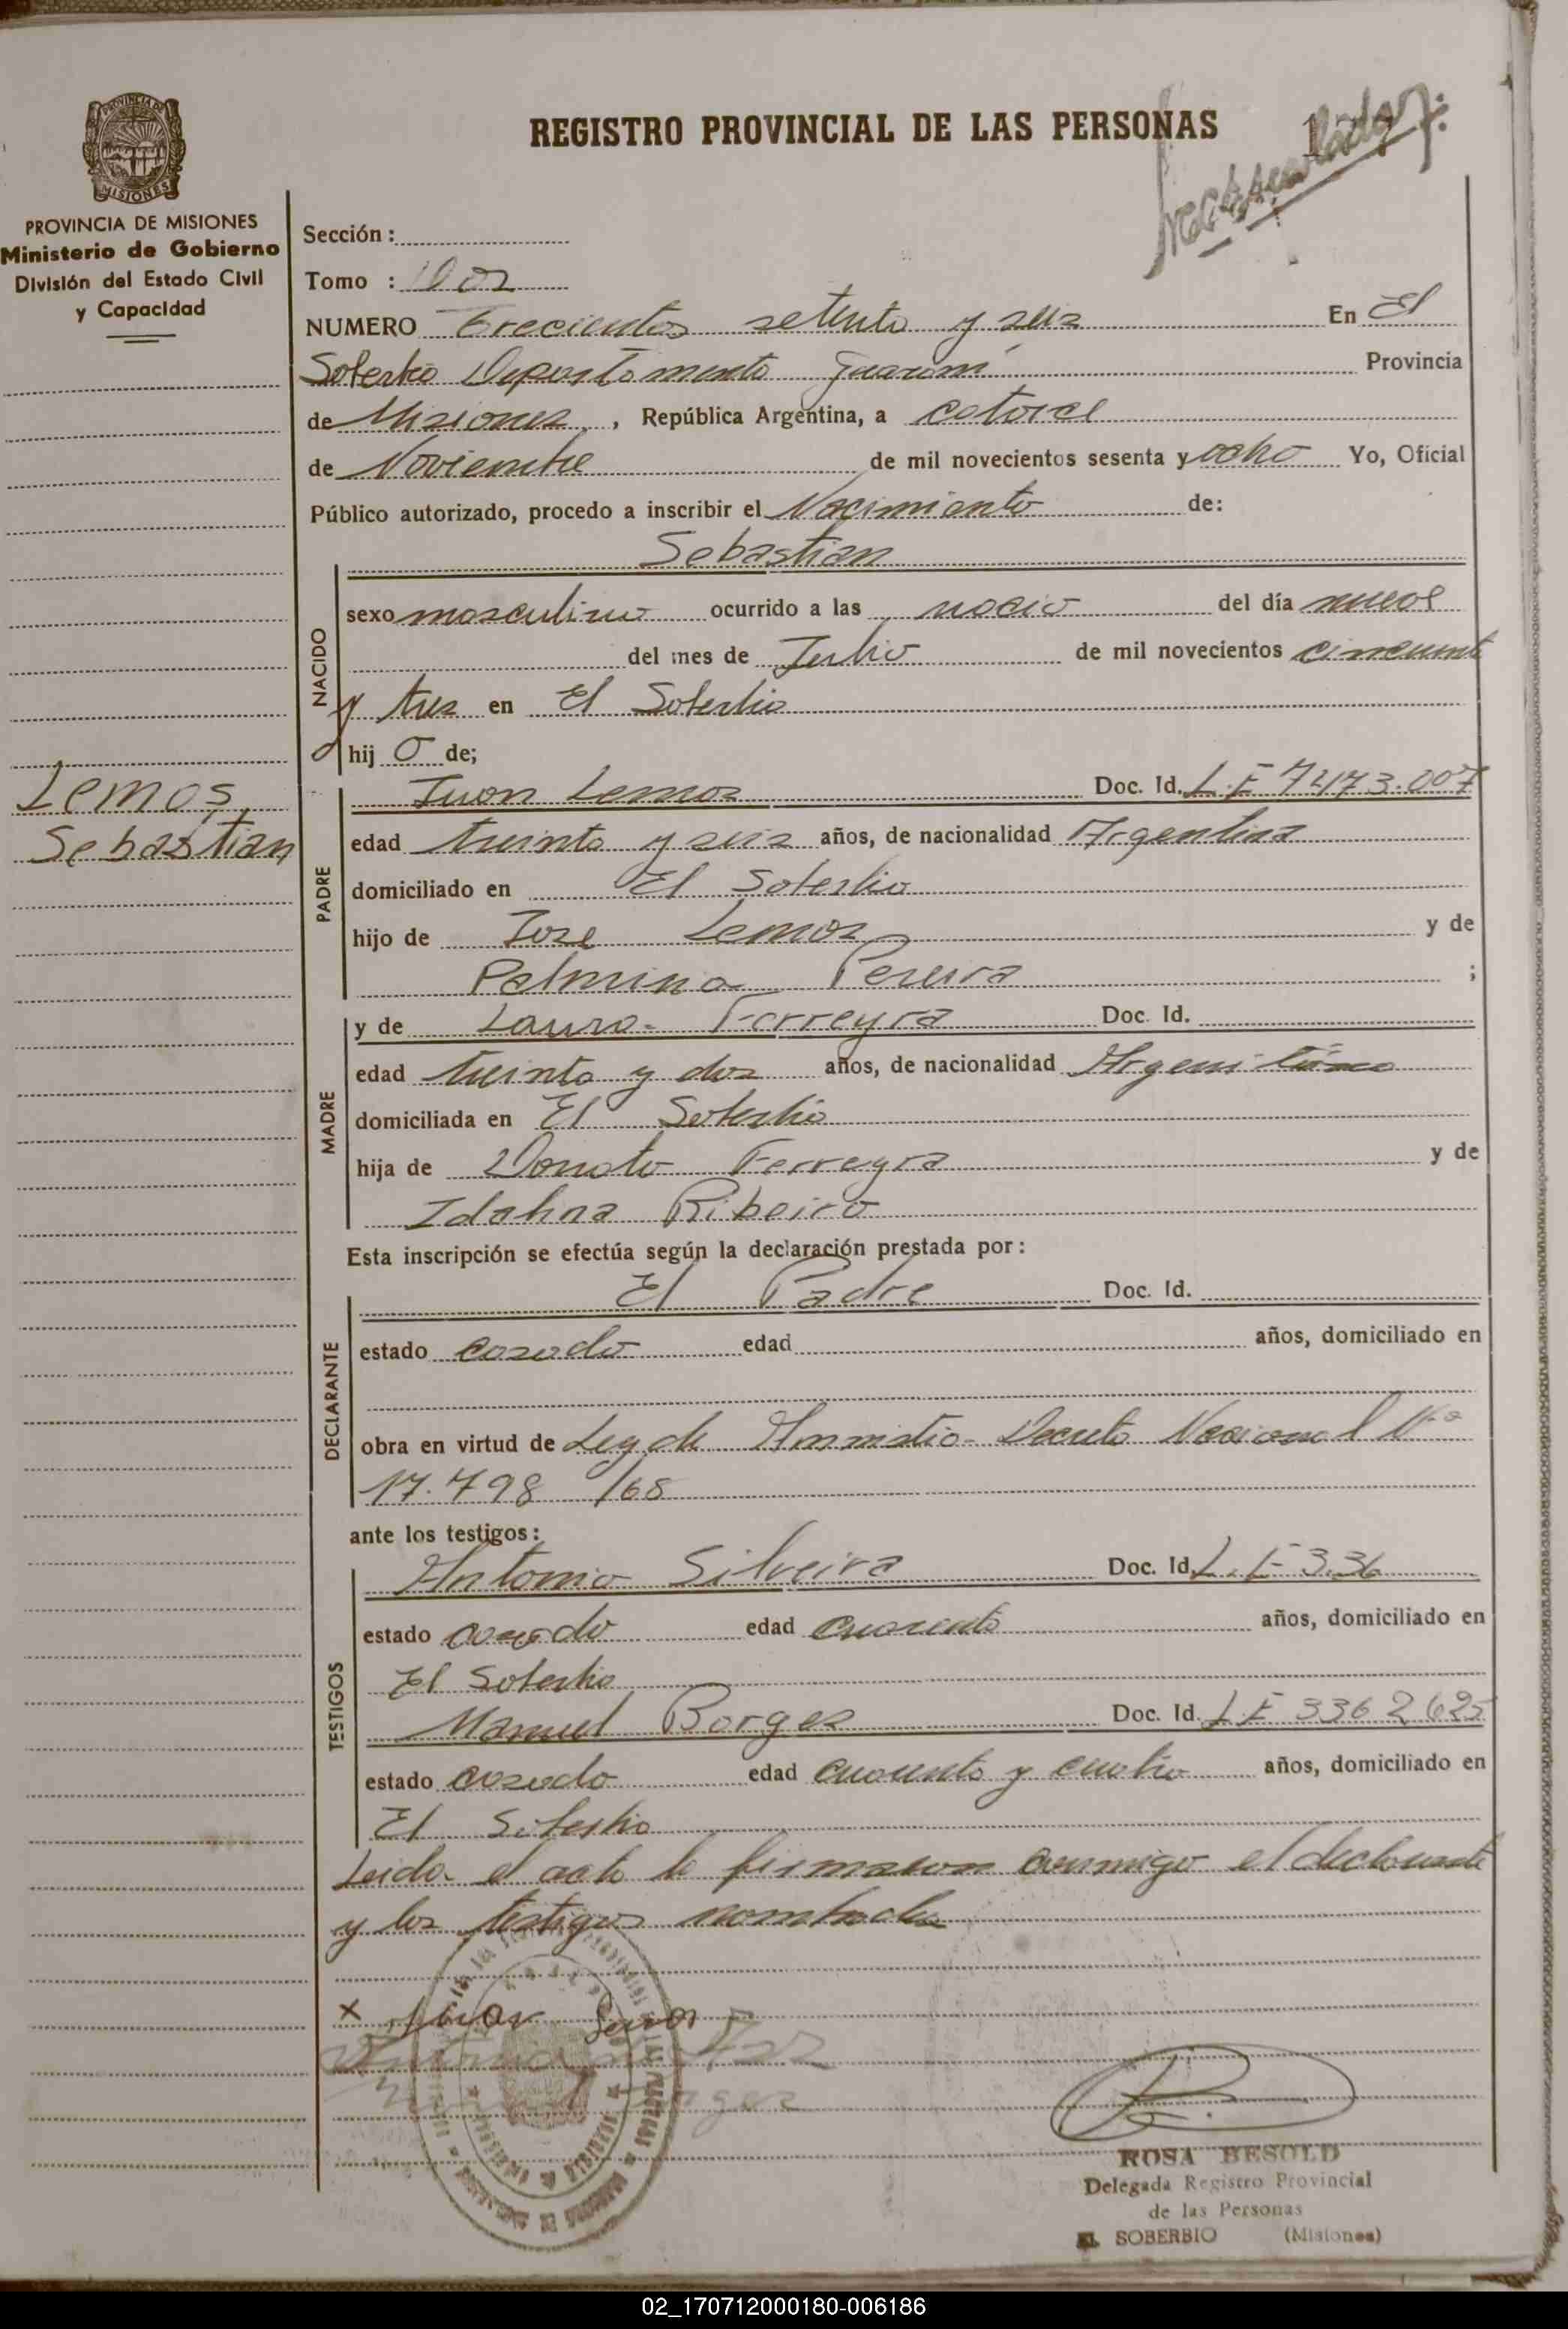 REGISTRO PROVINCIAL DE LAS PERSONAS
PROVINCIA DE MISIONES
Ministerio de Gobierno
División del Estado Civil
y Capacidad
Sección :
Tomo : 1º 02
NUMERO Trecientos setenta y seis En El
Soberbio Departamento Guaraní Provincia
de Misiones, República Argentina, a catorce
de Noviembre de mil novecientos sesenta y ocho Yo, Oficial
Público autorizado, procedo a inscribir el Nacimiento de:
Sebastian
NACIDO
sexo masculino ocurrido a las nacio del día nueve
del mes de Julio de mil novecientos cincuenta
y tres en El Soberbio
hij o de;
Lemos,
Sebastian
PADRE
Juan Lemos Doc. Id. L.E 7473.007
edad treinta y seis años, de nacionalidad Argentina
domiciliado en El Soberbio
hijo de Jose Lemos y de
Palmira Pereira ;
MADRE
y de Laura Ferreyra Doc. Id.
edad treinta y dos años, de nacionalidad Argentina
domiciliada en El Soberbio
hija de Donato Ferreyra y de
Idalina Ribeiro
Esta inscripción se efectúa según la declaración prestada por :
DECLARANTE
El Padre Doc. Id.
estado casado edad años, domiciliado en
obra en virtud de Ley de Amnistia- Decreto Nacional Nº
17.798 /68
ante los testigos :
TESTIGOS
Antonio Silveira Doc. Id L.E 3.36
estado casado edad cuarenta años, domiciliado en
El Soberbio
Manuel Borges Doc. Id. L.E 336 2 625
estado casado edad cuarenta y cuatro años, domiciliado en
El Soberbio
Leida el acta la firmaron conmigo el declarante
y los testigos nombrados
x Juan
ROSA BESOLD
Delegada Registro Provincial
de las Personas
EL SOBERBIO (Misiones)
02_170712000180-006186